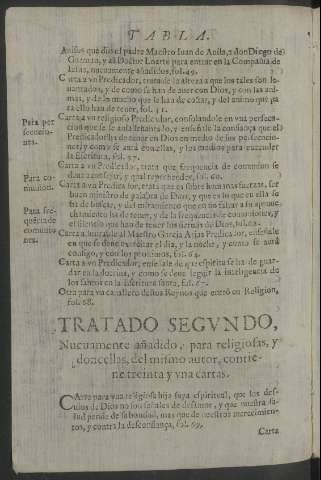 TABLA.
Auisos que dio el padre Maestro Iuan de Auila, a don Diego de
Guzman, y al Doctor Loarte para entrar en la Compañia de
Iesus, nueuamente añadidos, fol. 49.
Carta a vn Predicador, trata de la alteza a que los tales son le-
uantados, y de como se han de auer con Dios, y con las ani-
mas, y de lo mucho que le han de costar, y del animo que pa
ra ello han de tener, fol. 51.
Para per
secucio-
nes.
Carta a vn religioso Predicador, consolandole en vna perse-
cucion que se le auia leuantado, y enseñale la confiança que el
Predicador ha de tener en Dios en medio de sus persecucio-
nes, y como se aurà con ellas, y los medios para entender
la Escritura, fol. 57.
Para co-
munion.
Carta a vn Predicador, trata que frequencia de comunion se
deua aconsejar, y qual reprehender, fol. 60.
Carta a vn Predicador, trata que es sobre hora mas
buen ministro de palabra de Dios, y que es lo que en ella se
ha de buscar, y del miramiento que en no faltar a su aproue-
chamiento ha de tener, y de la frequencia de comuniones, y
el silencio que han de tener los sieruos de Dios, fol. 62.
Para fre-
quẽcia de
comunio
nes.
Carta a Maestro Garcia Arias Predicador, enseñale
en que se deue exercitar el dia, y la noche, y como se aurà
consigo, y con los proximos, fol. 64.
Carta a vn Predicador, enseñale de que espiritu se ha de guar-
dar en la dotrina, y como se deue seguir la inteligencia de
los santos en la Escritura santa, fol. 67.
Otra para vn cauallero destos Reynos que entrò en Religion,
fol. 68.
TRATADO SEGVNDO,
Nueuamente añadido, para religiosas, y
donzellas, del mismo autor, contie-
ne treinta y vna cartas.
Carta para vna religiosa hija suya espiritual, que los des-
cuidos de Dios no son señales de desamor, y que nuestra sa-
lud pende de su bondad, mas que de nuestros merecimien-
tos, y contra la desconfiança, fol. 69.
Carta